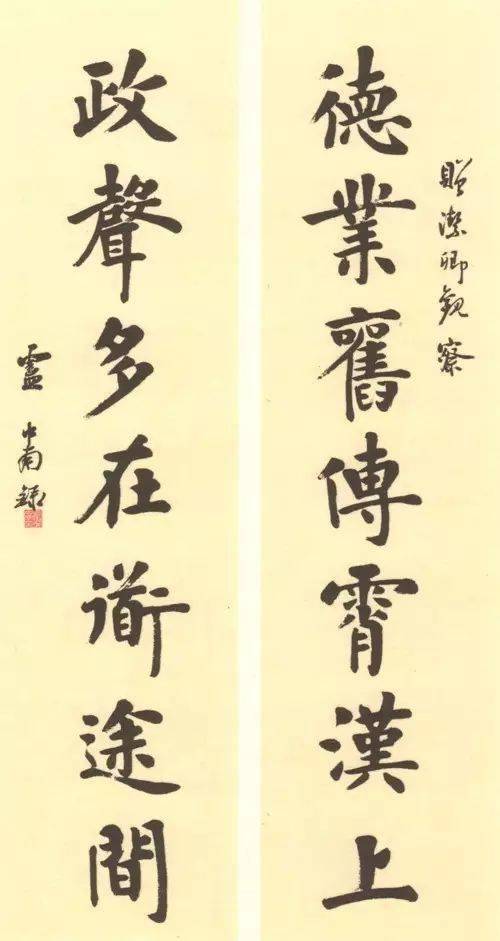 贈潔卿觀察
德業舊傳霄漢上
政聲多在衜途間
盧中南錄